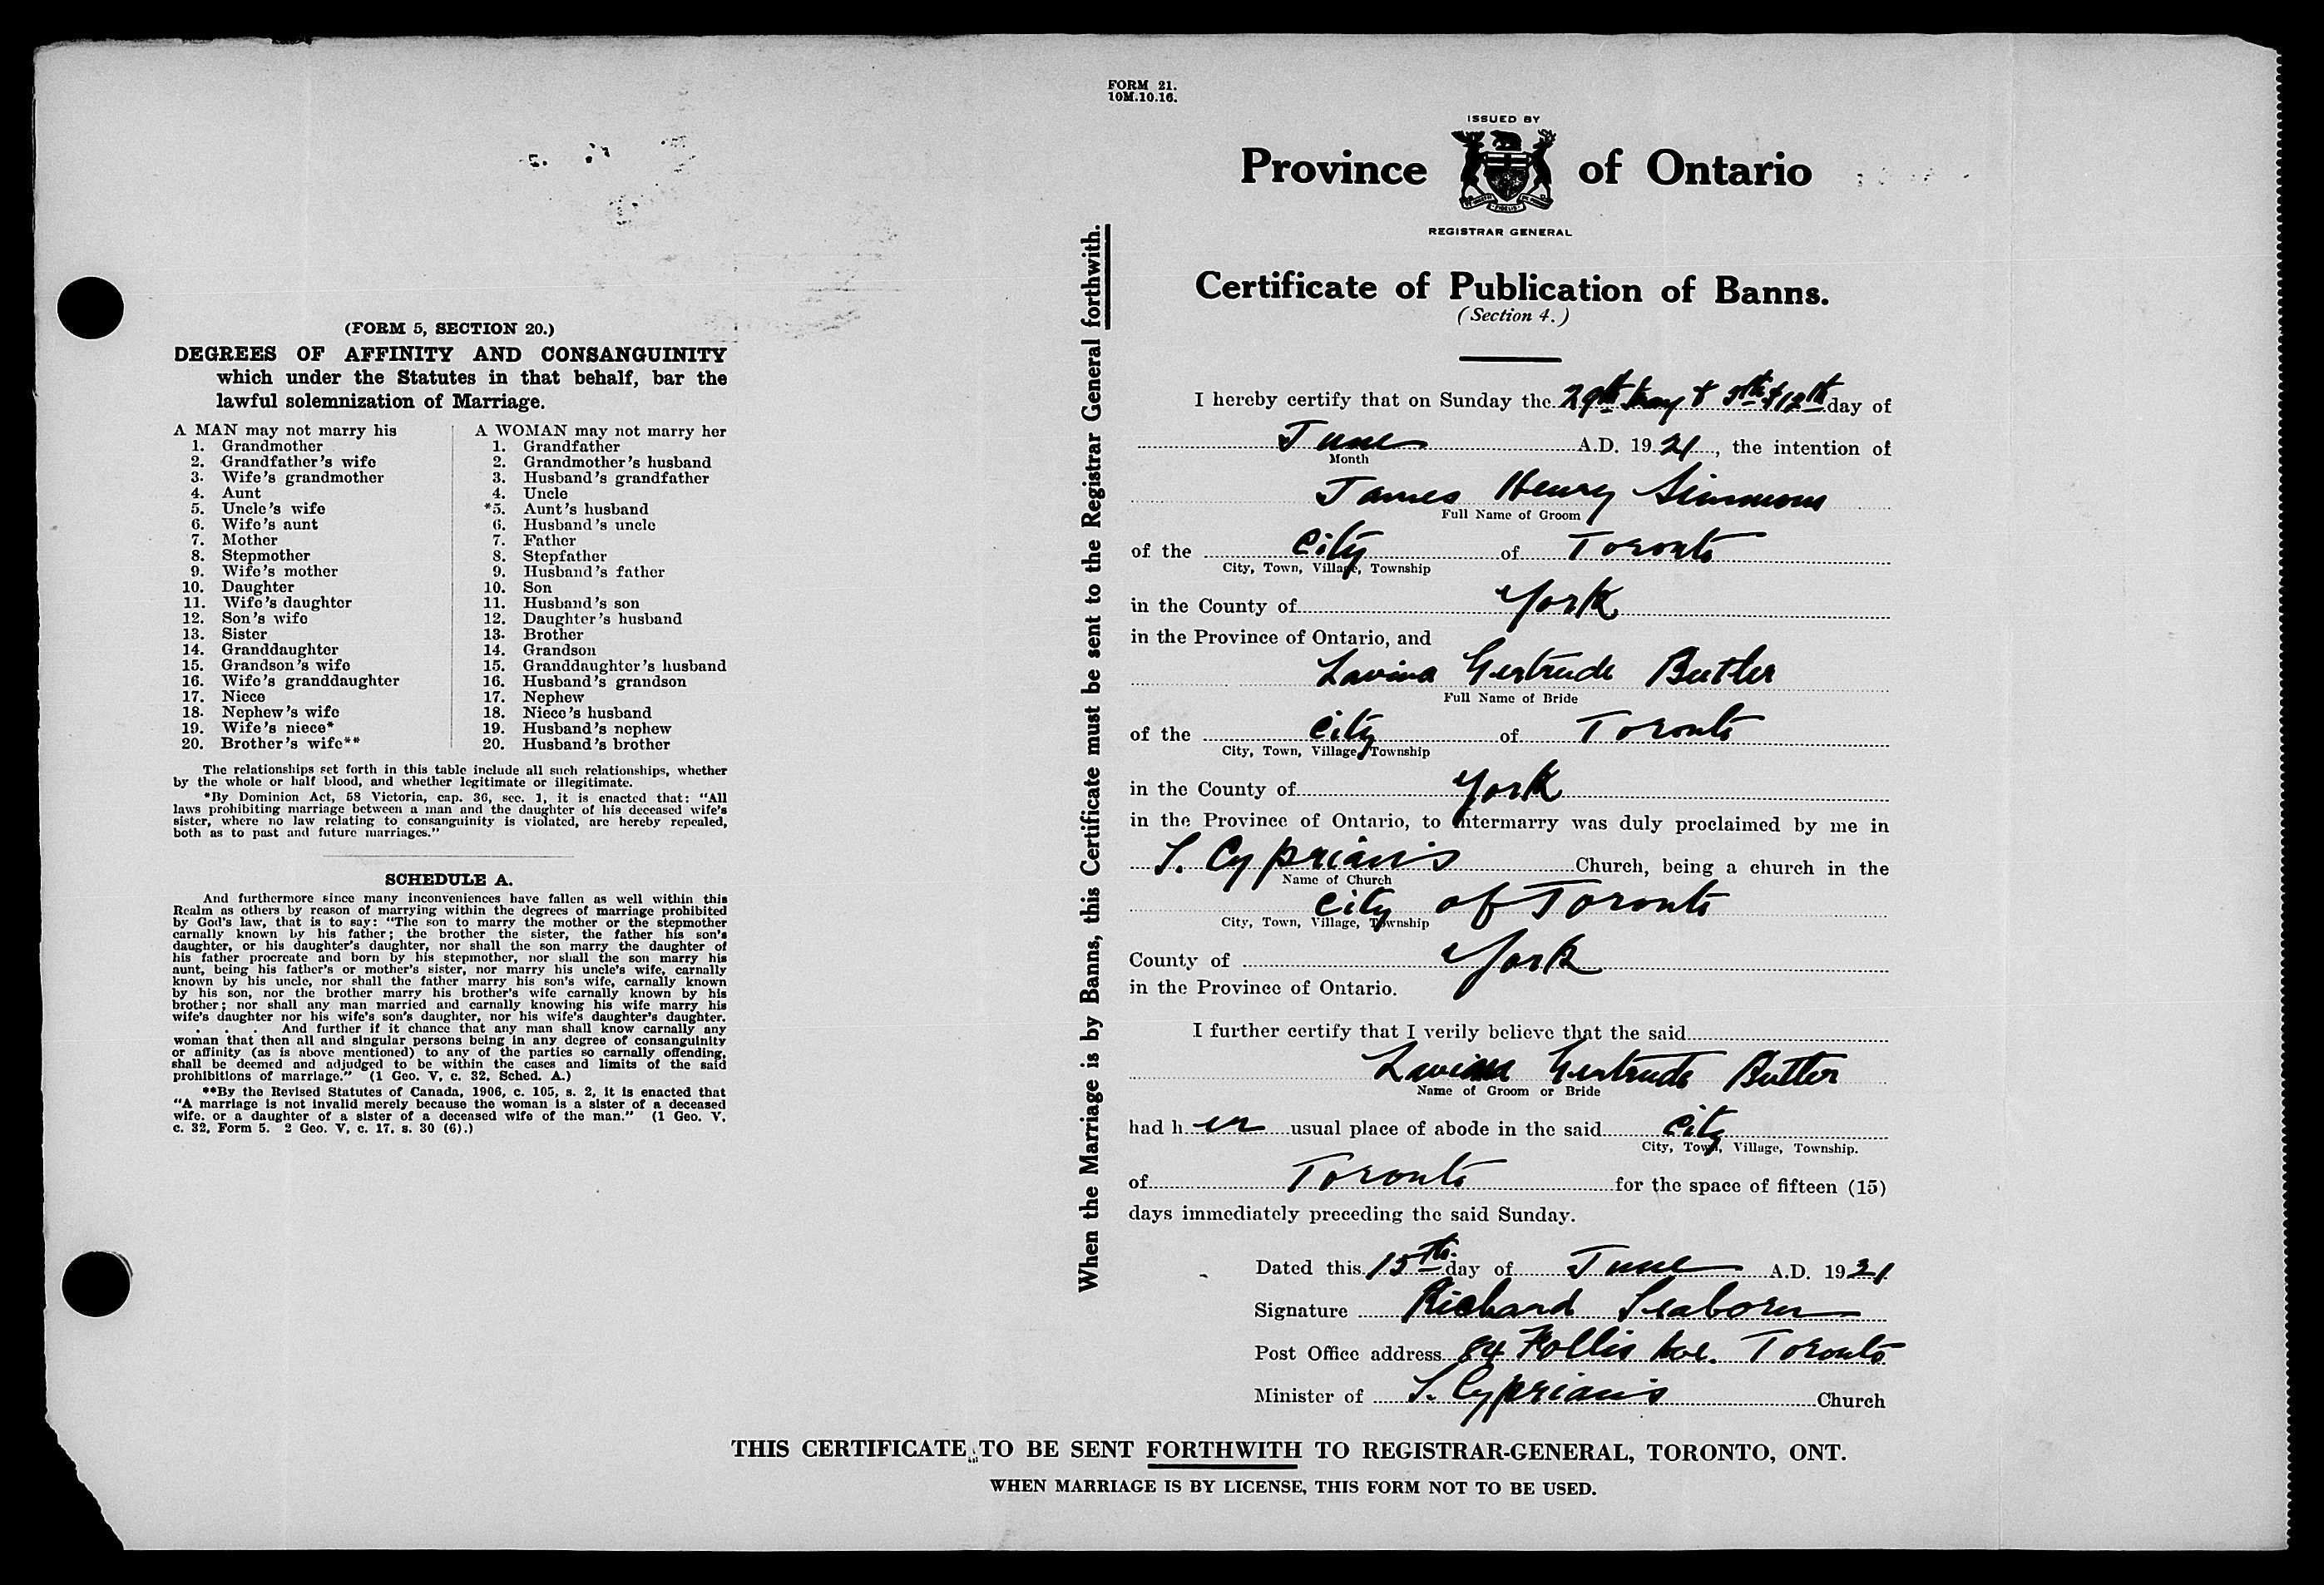 (FORM 5, SECTION 20.)
DEGREES OF AFFINITY AND CONSANGUINITY
which under the Statutes in that behalf, bar the
lawful solemnization of Marriage.
A MAN may not marry his
1. Grandmother
2. Grandfather's wife
3. Wife's grandmother
4. Aunt
5. Uncle's wife
6. Wife's aunt
7. Mother
8. Stepmother
9. Wife's mother
10. Daughter
11. Wife's daughter
12. Son's wife
13. Sister
14. Granddaughter
15. Grandson's wife
16. Wife's granddaughter
17. Niece
18. Nephew's wife
19. Wife's niece*
20. Brother's wife**
A WOMAN may not marry her
1. Grandfather
2. Grandmother's husband
3. Husband's grandfather
4. Uncle
*5. Aunt's husband
6. Husband's uncle
7. Father
8. Stepfather
9. Husband's father
10. Son
11. Husband's son
12. Daughter's husband
13. Brother
14. Grandson
15. Granddaughter's husband
16. Husband's grandson
17. Nephew
18. Niece's husband
19. Husband's nephew
20. Husband's brother
The relationships set forth in this table include all such relationships, whether
by the whole or half blood, and whether legitimate or illegitimate.
*By Dominion Act, 58 Victoria, cap. 36, sec. 1, it is enacted that: "All
laws prohibiting marriage between a man and the daughter of his deceased wife's
sister, where no law relating to consanguinity is violated, are hereby repealed,
both as to past and future marriages."
SCHEDULE A.
And furthermore since many inconveniences have fallen as well within this
Realm as others by reason of marrying within the degrees of marriage prohibited
by God's law, that is to say: "The son to marry the mother or the stepmother
carnally known by his father; the brother the sister, the father his son's
daughter, or his daughter's daughter, nor shall the son marry the daughter of
his father procreate and born by his stepmother, nor shall the son marry his
aunt, being his father's or mother's sister, nor marry his uncle's wife, carnally
known by his uncle, nor shall the father marry his son's wife, carnally known
by his son, nor the brother marry his brother's wife carnally known by his
brother; nor shall any man married and carnally knowing his wife marry his
wife's daughter nor his wife's son's daughter, nor his wife's daughter's daughter.
. . . And further if it chance that any man shall know carnally any
woman that then all and singular persons being in any degree of consanguinity
or affinity (as is above mentioned) to any of the parties so carnally offending,
shall be deemed and adjudged to be within the cases and limits of the said
prohibitions of marriage." (1 Geo. V, c. 32, Sched. A.)
**By the Revised Statutes of Canada, 1906, c. 105, s. 2, it is enacted that
"A marriage is not invalid merely because the woman is a sister of a deceased
wife, or a daughter of a sister of a deceased wife of the man." (1 Geo. V,
c. 32, Form 5. 2 Geo. V, c. 17, s. 30 (6).)
When the Marriage is by Banns, this Certificate must be sent to the Registrar General forthwith.
FORM 21.
10M.10.16.
ISSUED BY
Province of Ontario
REGISTRAR GENERAL
Certificate of Publication of Banns.
(Section 4.)
I hereby certify that on Sunday the 29th May & 5th & 12th day of
June A.D. 1921, the intention of
Month
James Henry Simmons
Full Name of Groom
of the City of Toronto
City, Town, Village, Township
in the County of York
in the Province of Ontario, and
Lavina Gertrude Butler
Full Name of Bride
of the City of Toronto
City, Town, Village, Township
in the County of York
in the Province of Ontario, to intermarry was duly proclaimed by me in
S. Cyprian's Church, being a church in the
Name of Church
City of Toronto
City, Town, Village, Township
County of York
in the Province of Ontario.
I further certify that I verily believe that the said
Lavina Gertrude Butler
Name of Groom or Bride
had her usual place of abode in the said City
City, Town, Village, Township.
of Toronto for the space of fifteen (15)
days immediately preceding the said Sunday.
Dated this 15th day of June A.D. 1921
Signature Richard Seaborn
Post Office address 84 Follis Ave. Toronto
Minister of S. Cyprian's Church
THIS CERTIFICATE TO BE SENT FORTHWITH TO REGISTRAR-GENERAL, TORONTO, ONT.
WHEN MARRIAGE IS BY LICENSE, THIS FORM NOT TO BE USED.